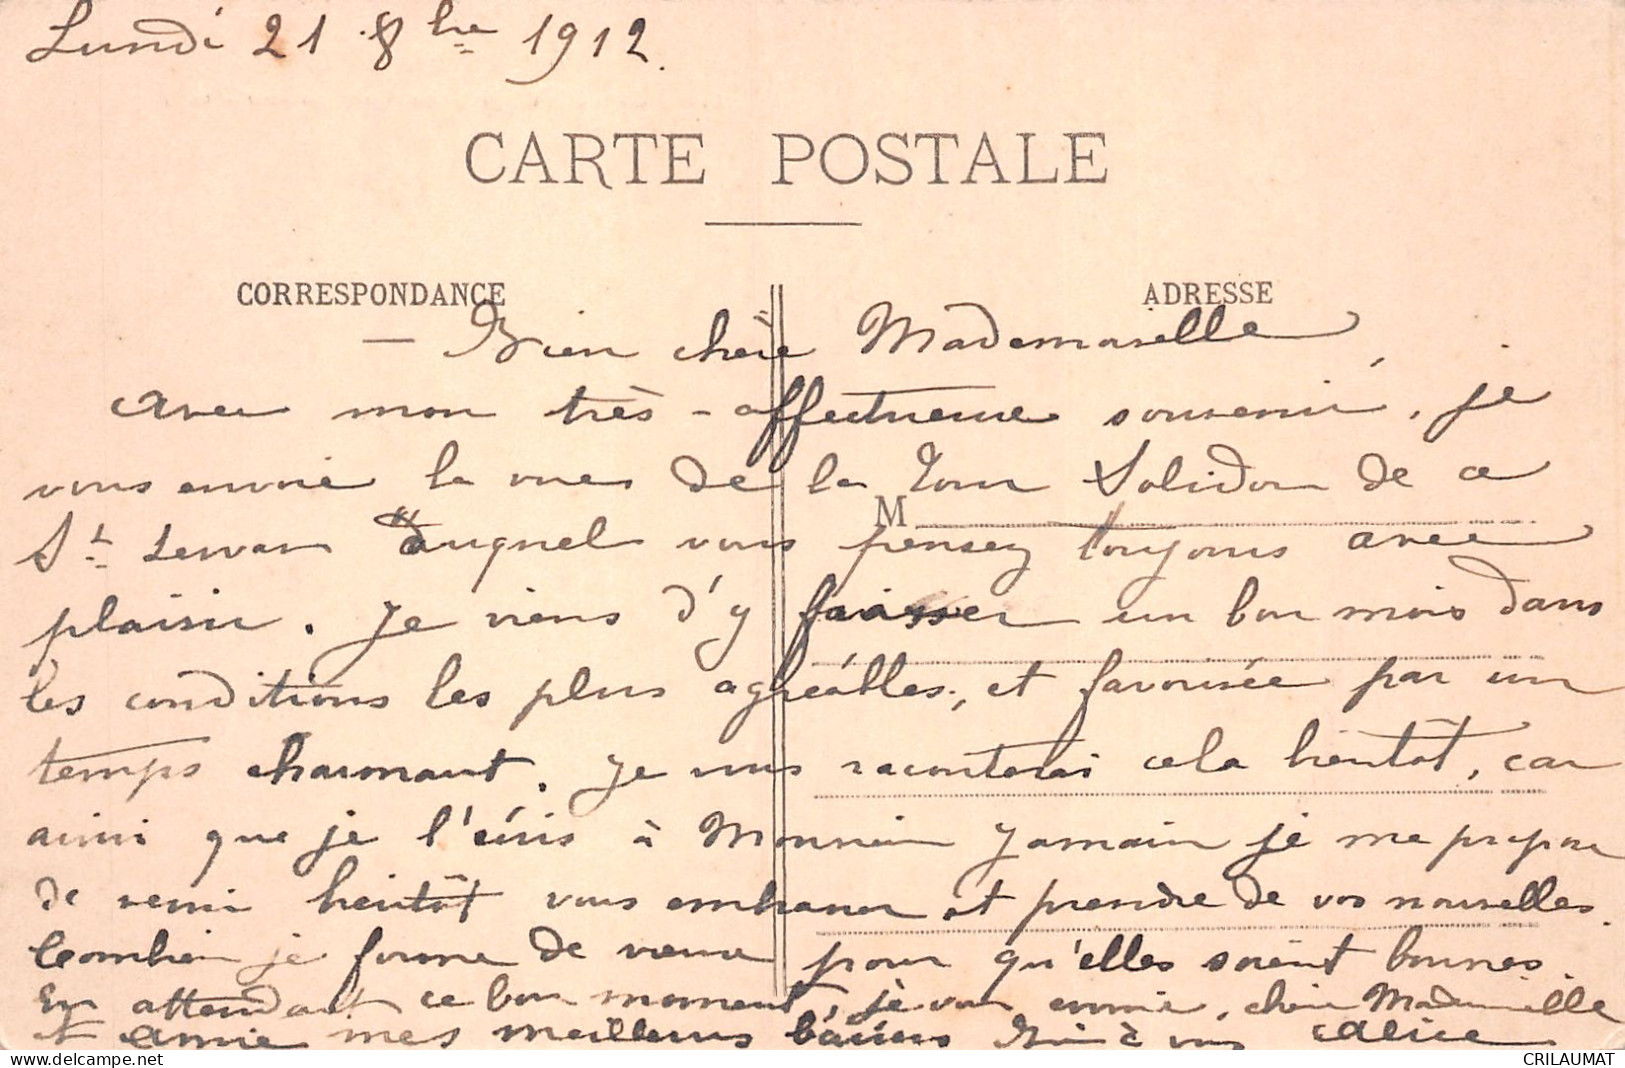 Lundi 21 8bre 1912.
CARTE POSTALE
CORRESPONDANCE
ADRESSE
— Bien chère Mademoiselle,
Avec mon très-affectueux souvenir, je
vous envoie la vue de la Tour Solidor de ce
St Servan auquel vous pensez toujours avec
M
plaisir. Je viens d'y passer un bon mois dans
les conditions les plus agréables, et favorisée par un
temps charmant. Je vous raconterai cela bientôt, car
ainsi que je l'écris à Monsieur Jamain je me propose
de venir bientôt vous embrasser et prendre de vos nouvelles.
Combien je forme de vœux pour qu'elles soient bonnes.
En attendant ce bon moment, je vous envoie, chère Mademoiselle
et amie mes meilleurs baisers Bien à vous Alice
delcampe.net
CRILAUMAT